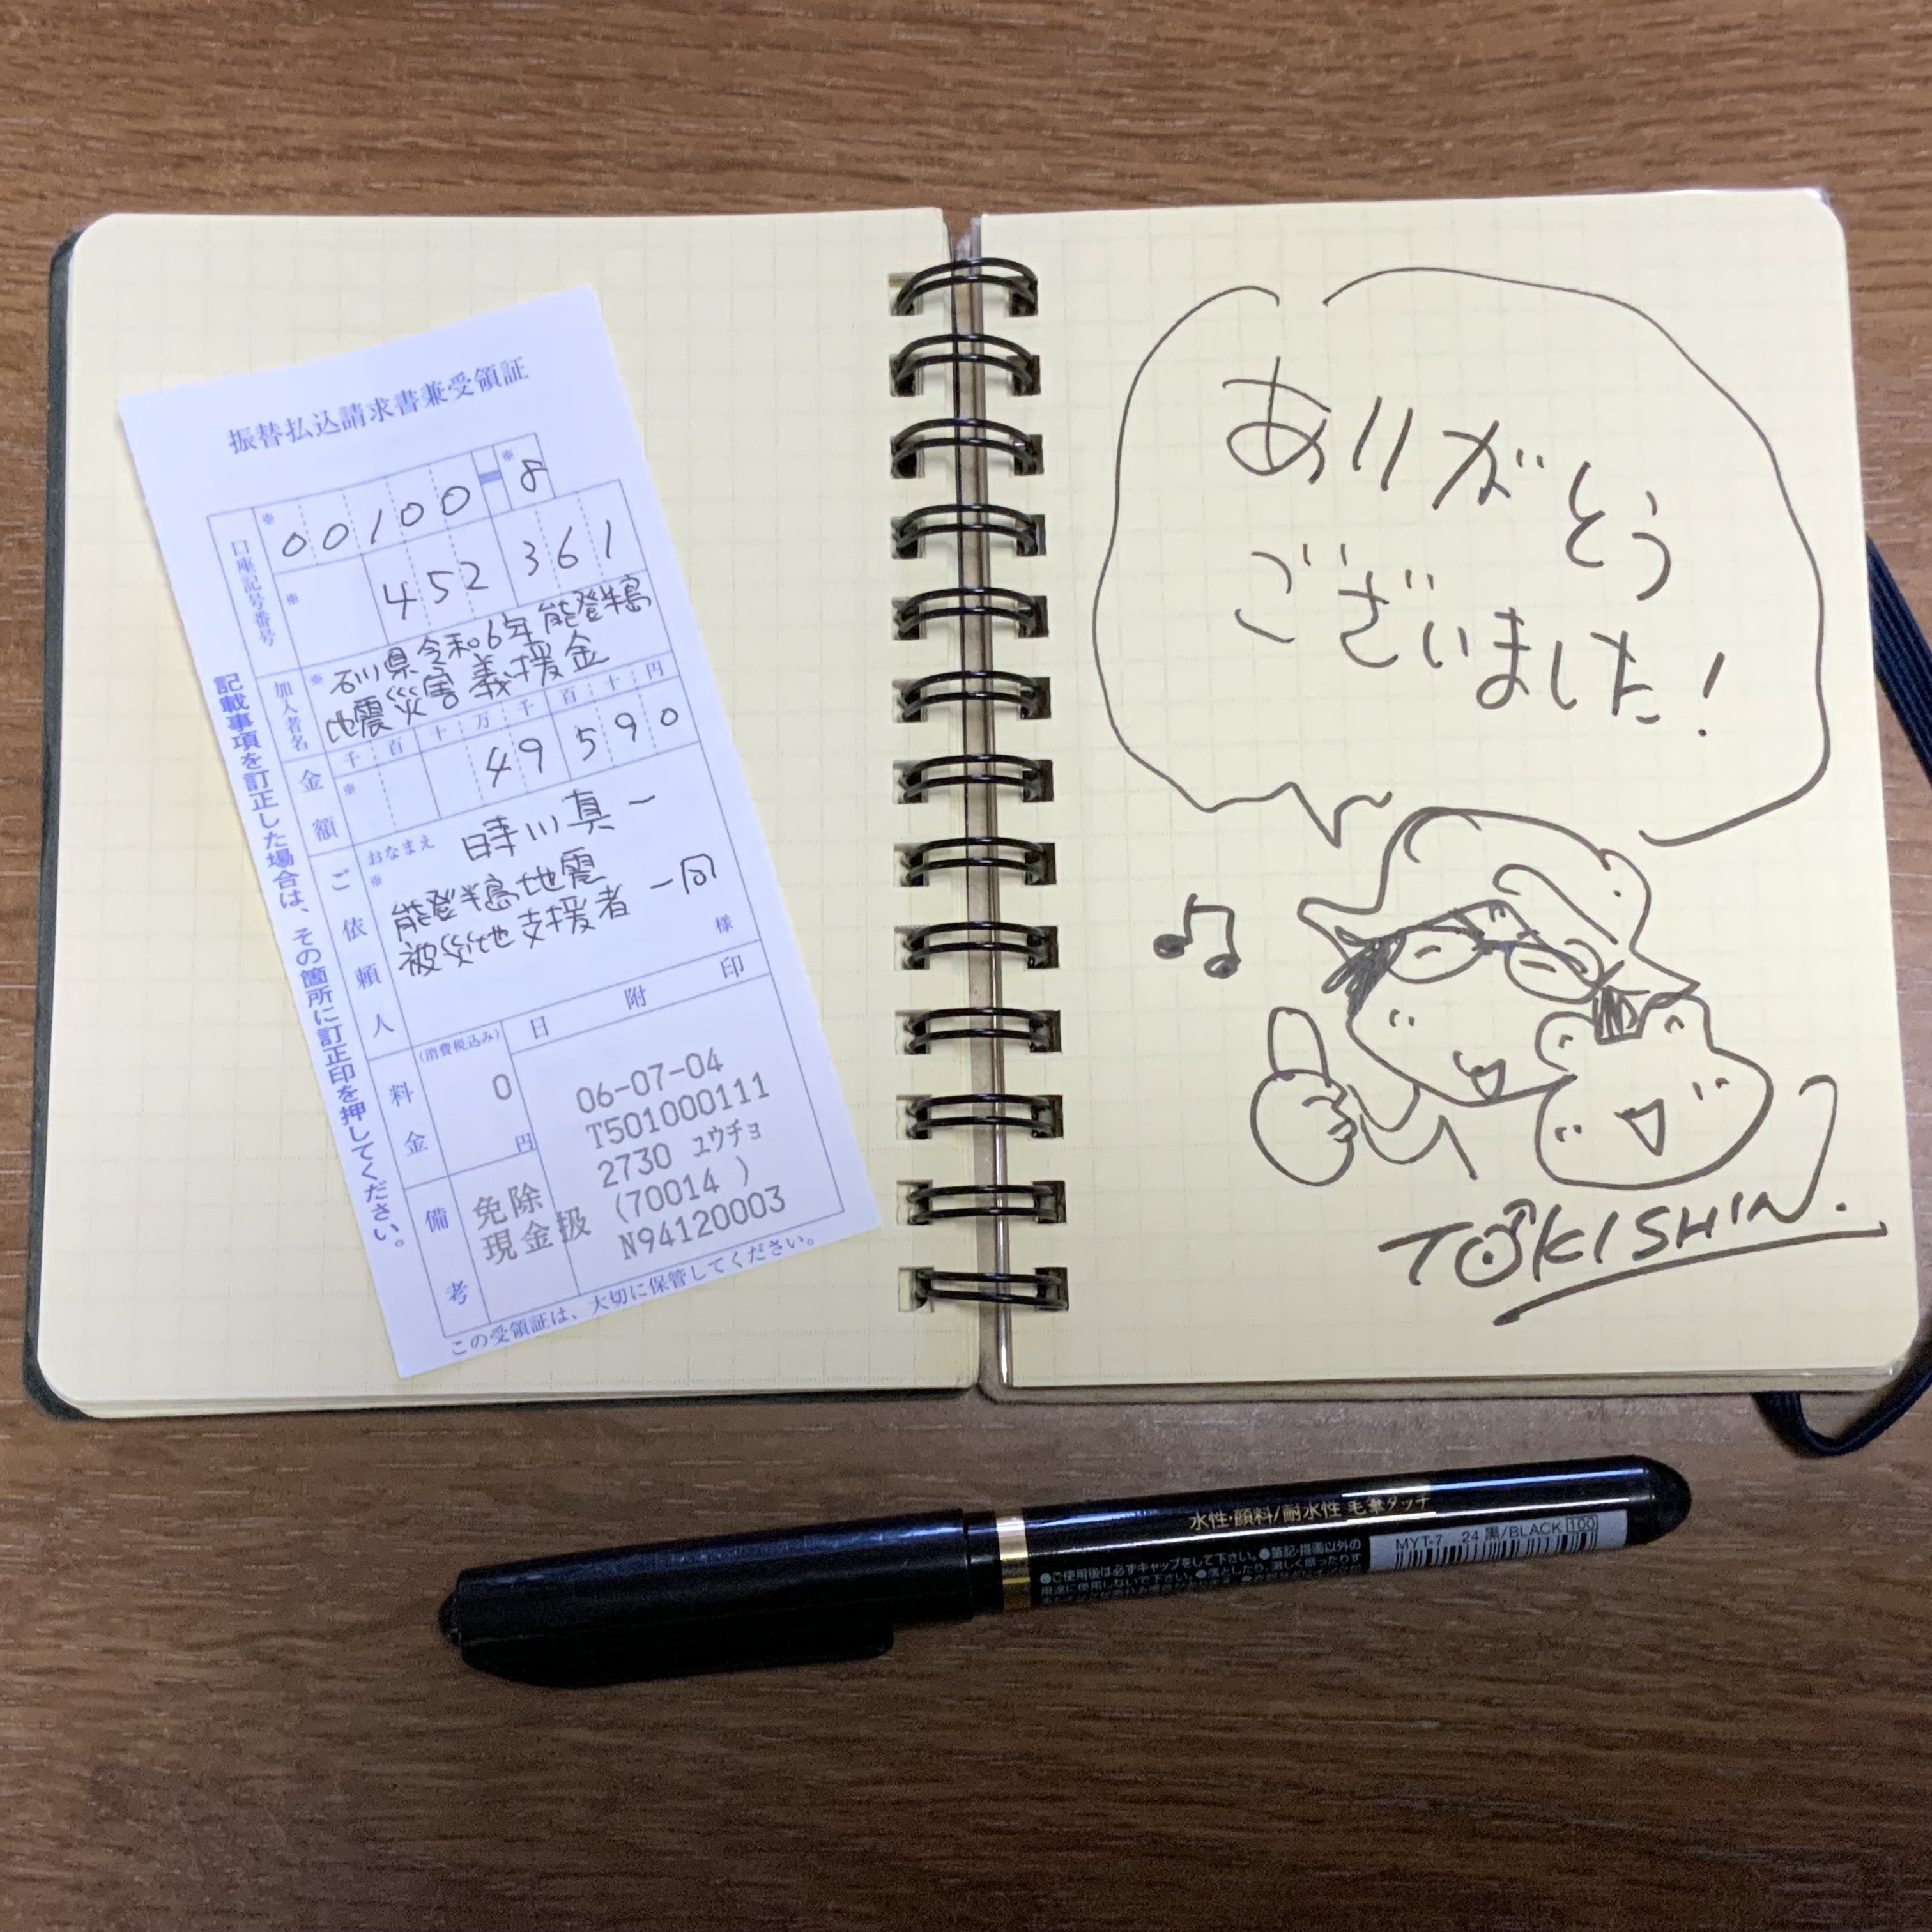 振替払込請求書兼受領証
口座記号番号
※ 00100 ※ 8
※ 452361
加入者名
※ 石川県令和6年能登半島
地震災害義援金
金額
千 百 十 万 千 百 十 円
※ 49590
ご依頼人
おなまえ
※ 時川真一
能登半島地震
被災地支援者 一同
様
料金
(消費税込み)
0
円
日 附 印
06-07-04
T501000111
2730 ユウチョ
(70014 )
N94120003
備考
免除
現金扱
記載事項を訂正した場合は、その箇所に訂正印を押してください。
この受領証は、大切に保管してください。
ありがとう
ございました!
TOKISHIN.
水性・顔料/耐水性 毛筆タッチ
MYT-7 24 黒/BLACK 100
●ご使用後は必ずキャップをして下さい。●筆記・描画以外の
用途に使用しないで下さい。●落としたり、激しく振ったりす